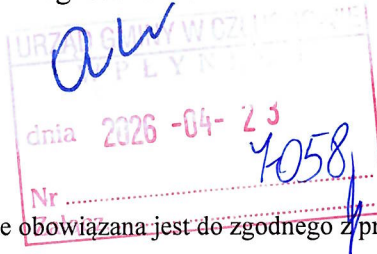 URZĄD GMINY W
WPŁYNĘŁO
dnia 2026 -04- 23
Nr 7058
e obowiązana jest do zgodnego z pr